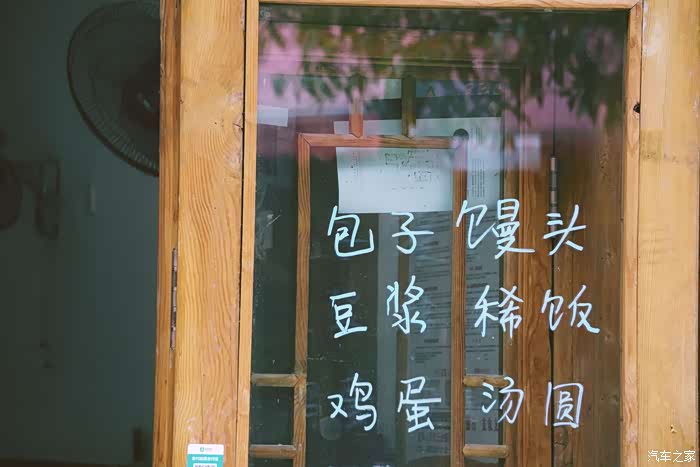 包子 馒头
豆浆 稀饭
鸡蛋 汤圆
汽车之家